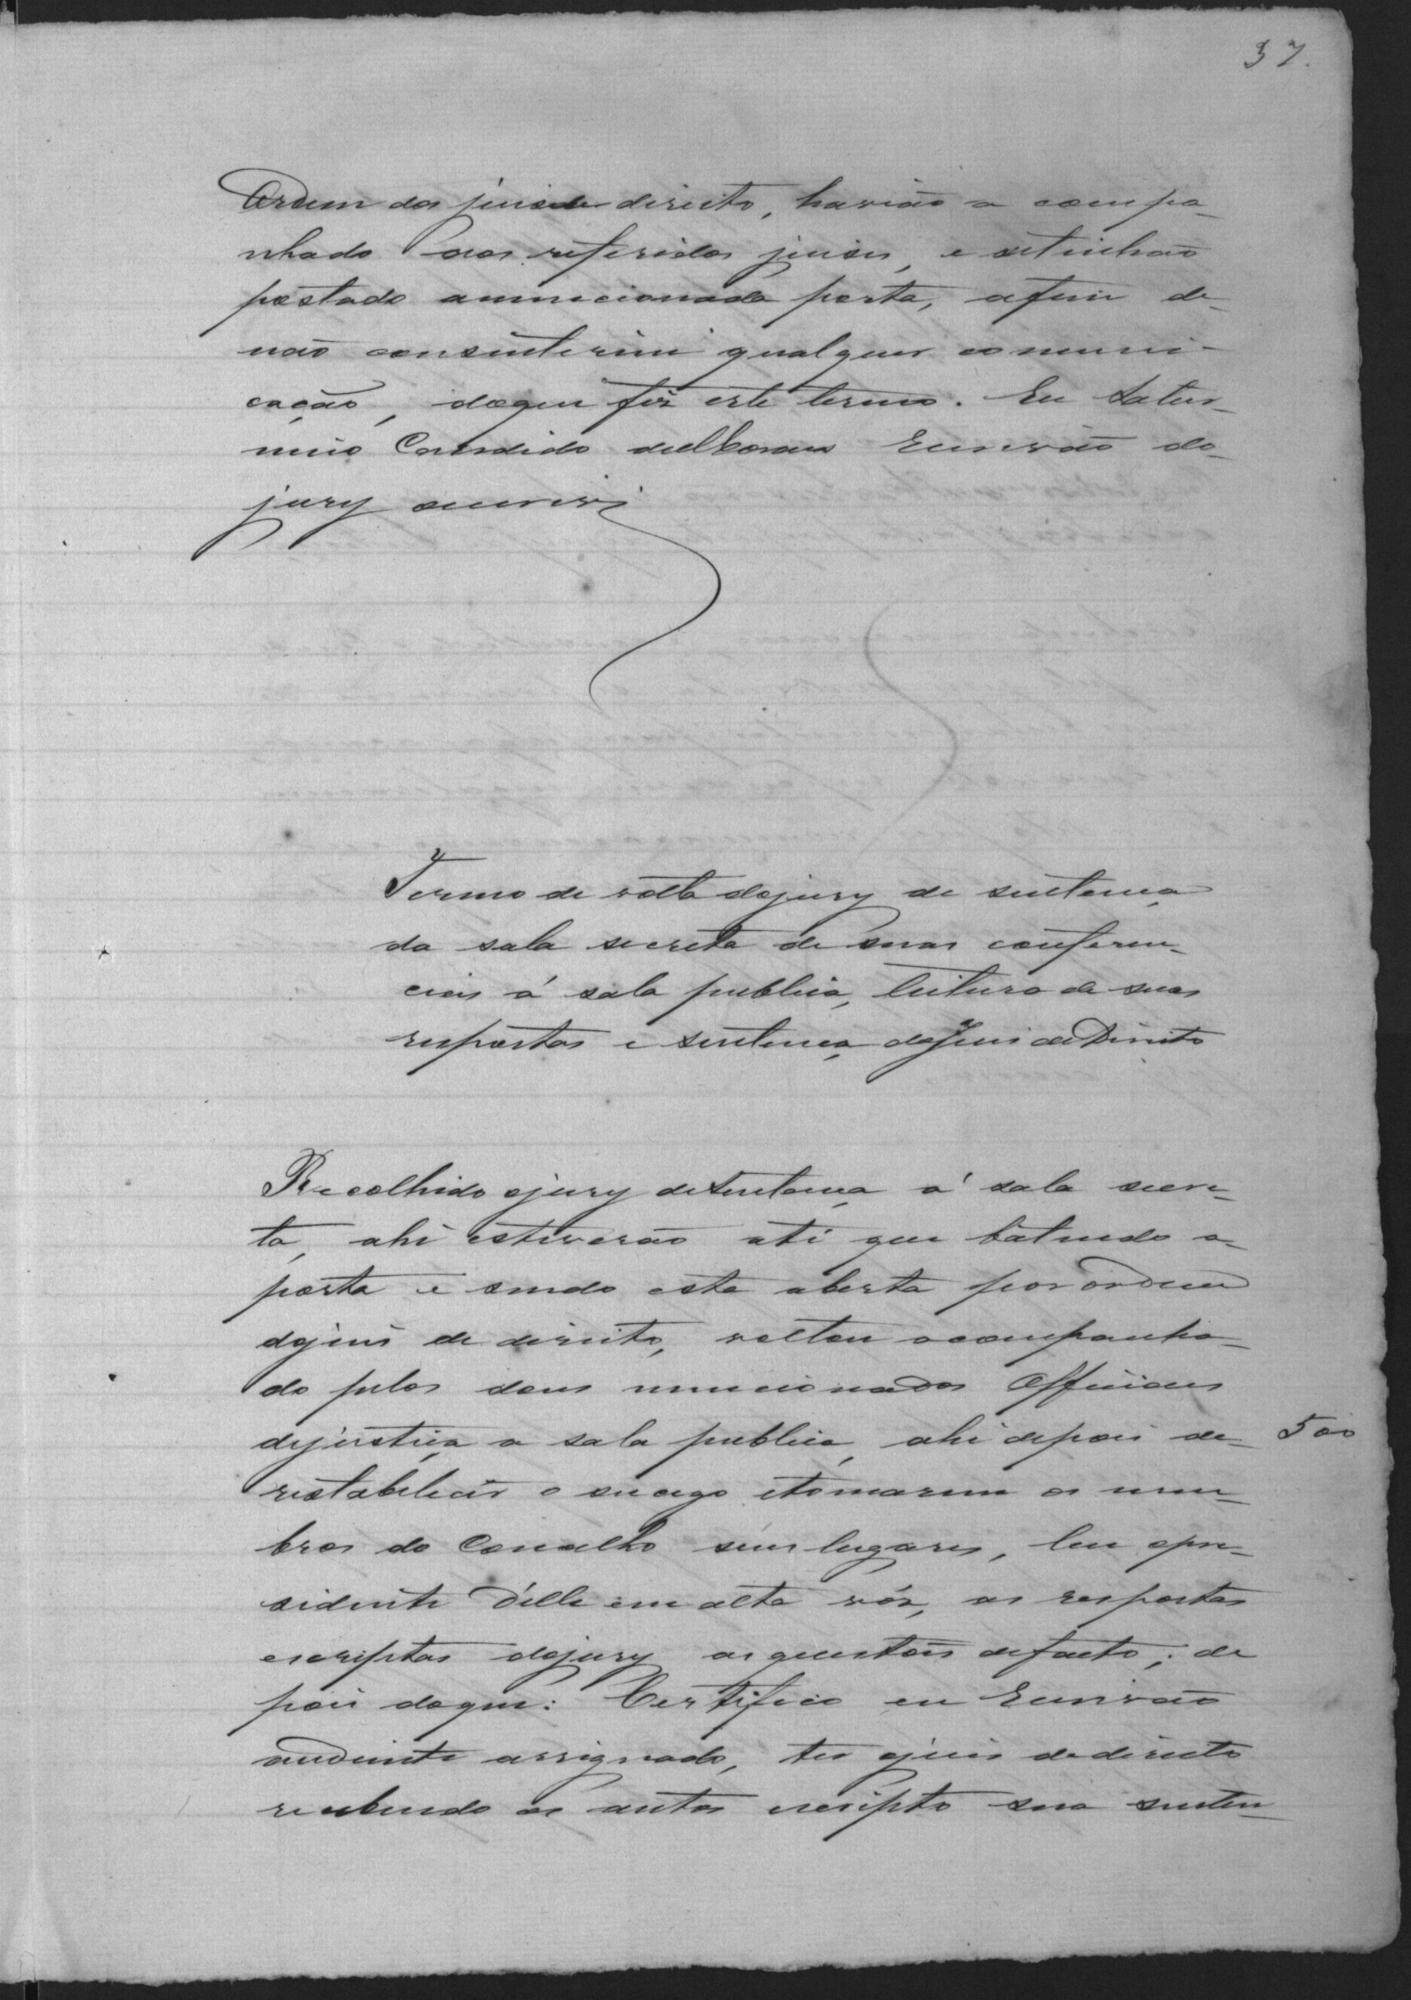 37.
Ordem do juis de direito, havião a compa-
nhado aos referidos juises, e setinhão
postado a mencionada porta, afim de
não consinterim qualquer communi-
cação, do que fiz este termo. Eu Satur-
nino Candido de Moraes Escrivão do
jury escrevi
Termo de volta do jury de sentença
da sala secreta de suas conferen-
cias á sala publica, leitura de suas
respostas e sentença do Juis de Direito
Recolhido o jury de Sentença á sala secre-
ta, ahi estiverão até que batendo a
porta e sendo esta aberta por ordem
do juis de direito, voltou acompanha-
do pelos dous mencionados Officiaes
de justiça a sala publica, ahi depois de
restabelecido o socego e tomarem os mem-
bros do Conselho seus lugares, leu o pre-
sidente d'elle em alta vós, as respostas
escriptas do jury as questões de facto; de
pois do que: Certifico eu Escrivão
audiante assignado, ter o juis de direito
recebendo os autos escripto sua senten-
500